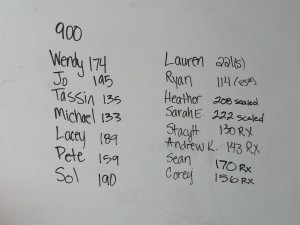 900
Wendy 174
Jo 195
Tassin 135
Michael 133
Lacey 189
Pete 159
Sol 190
Lauren 221(S)
Ryan 114
Heather 208 scaled
Sarah E. 222 scaled
Stacy H 130 RX
Andrew K. 143 RX
Sean 170 RX
Corey 156 RX